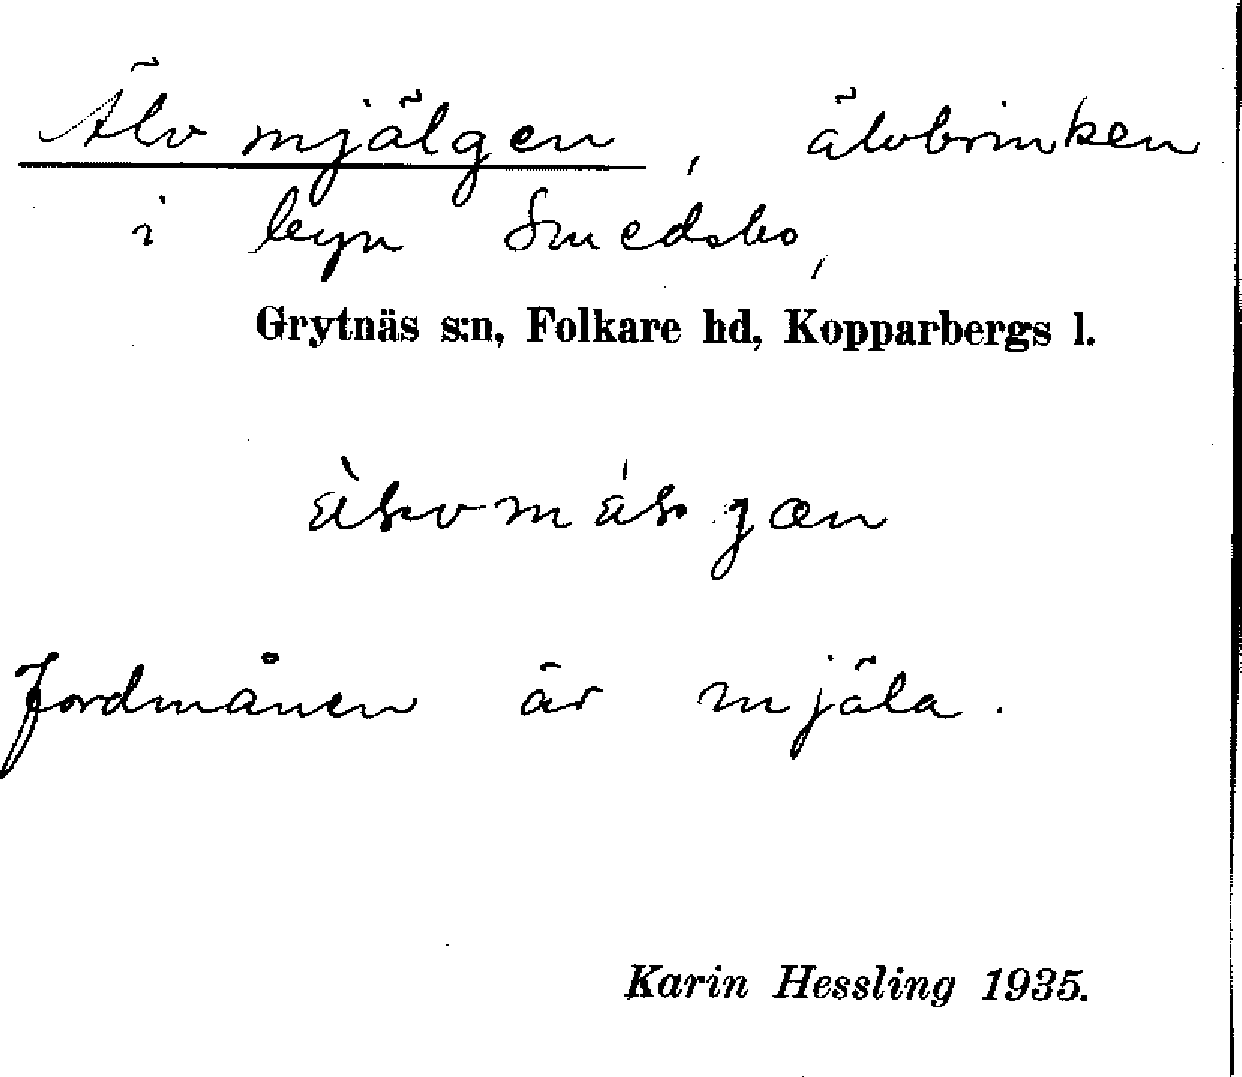 Älvmjälgen, älvbrinken
i byn Smedsbo,
Grytnäs s:n, Folkare hd, Kopparbergs l.
Jordmånen är mjäla.
Karin Hessling 1935.